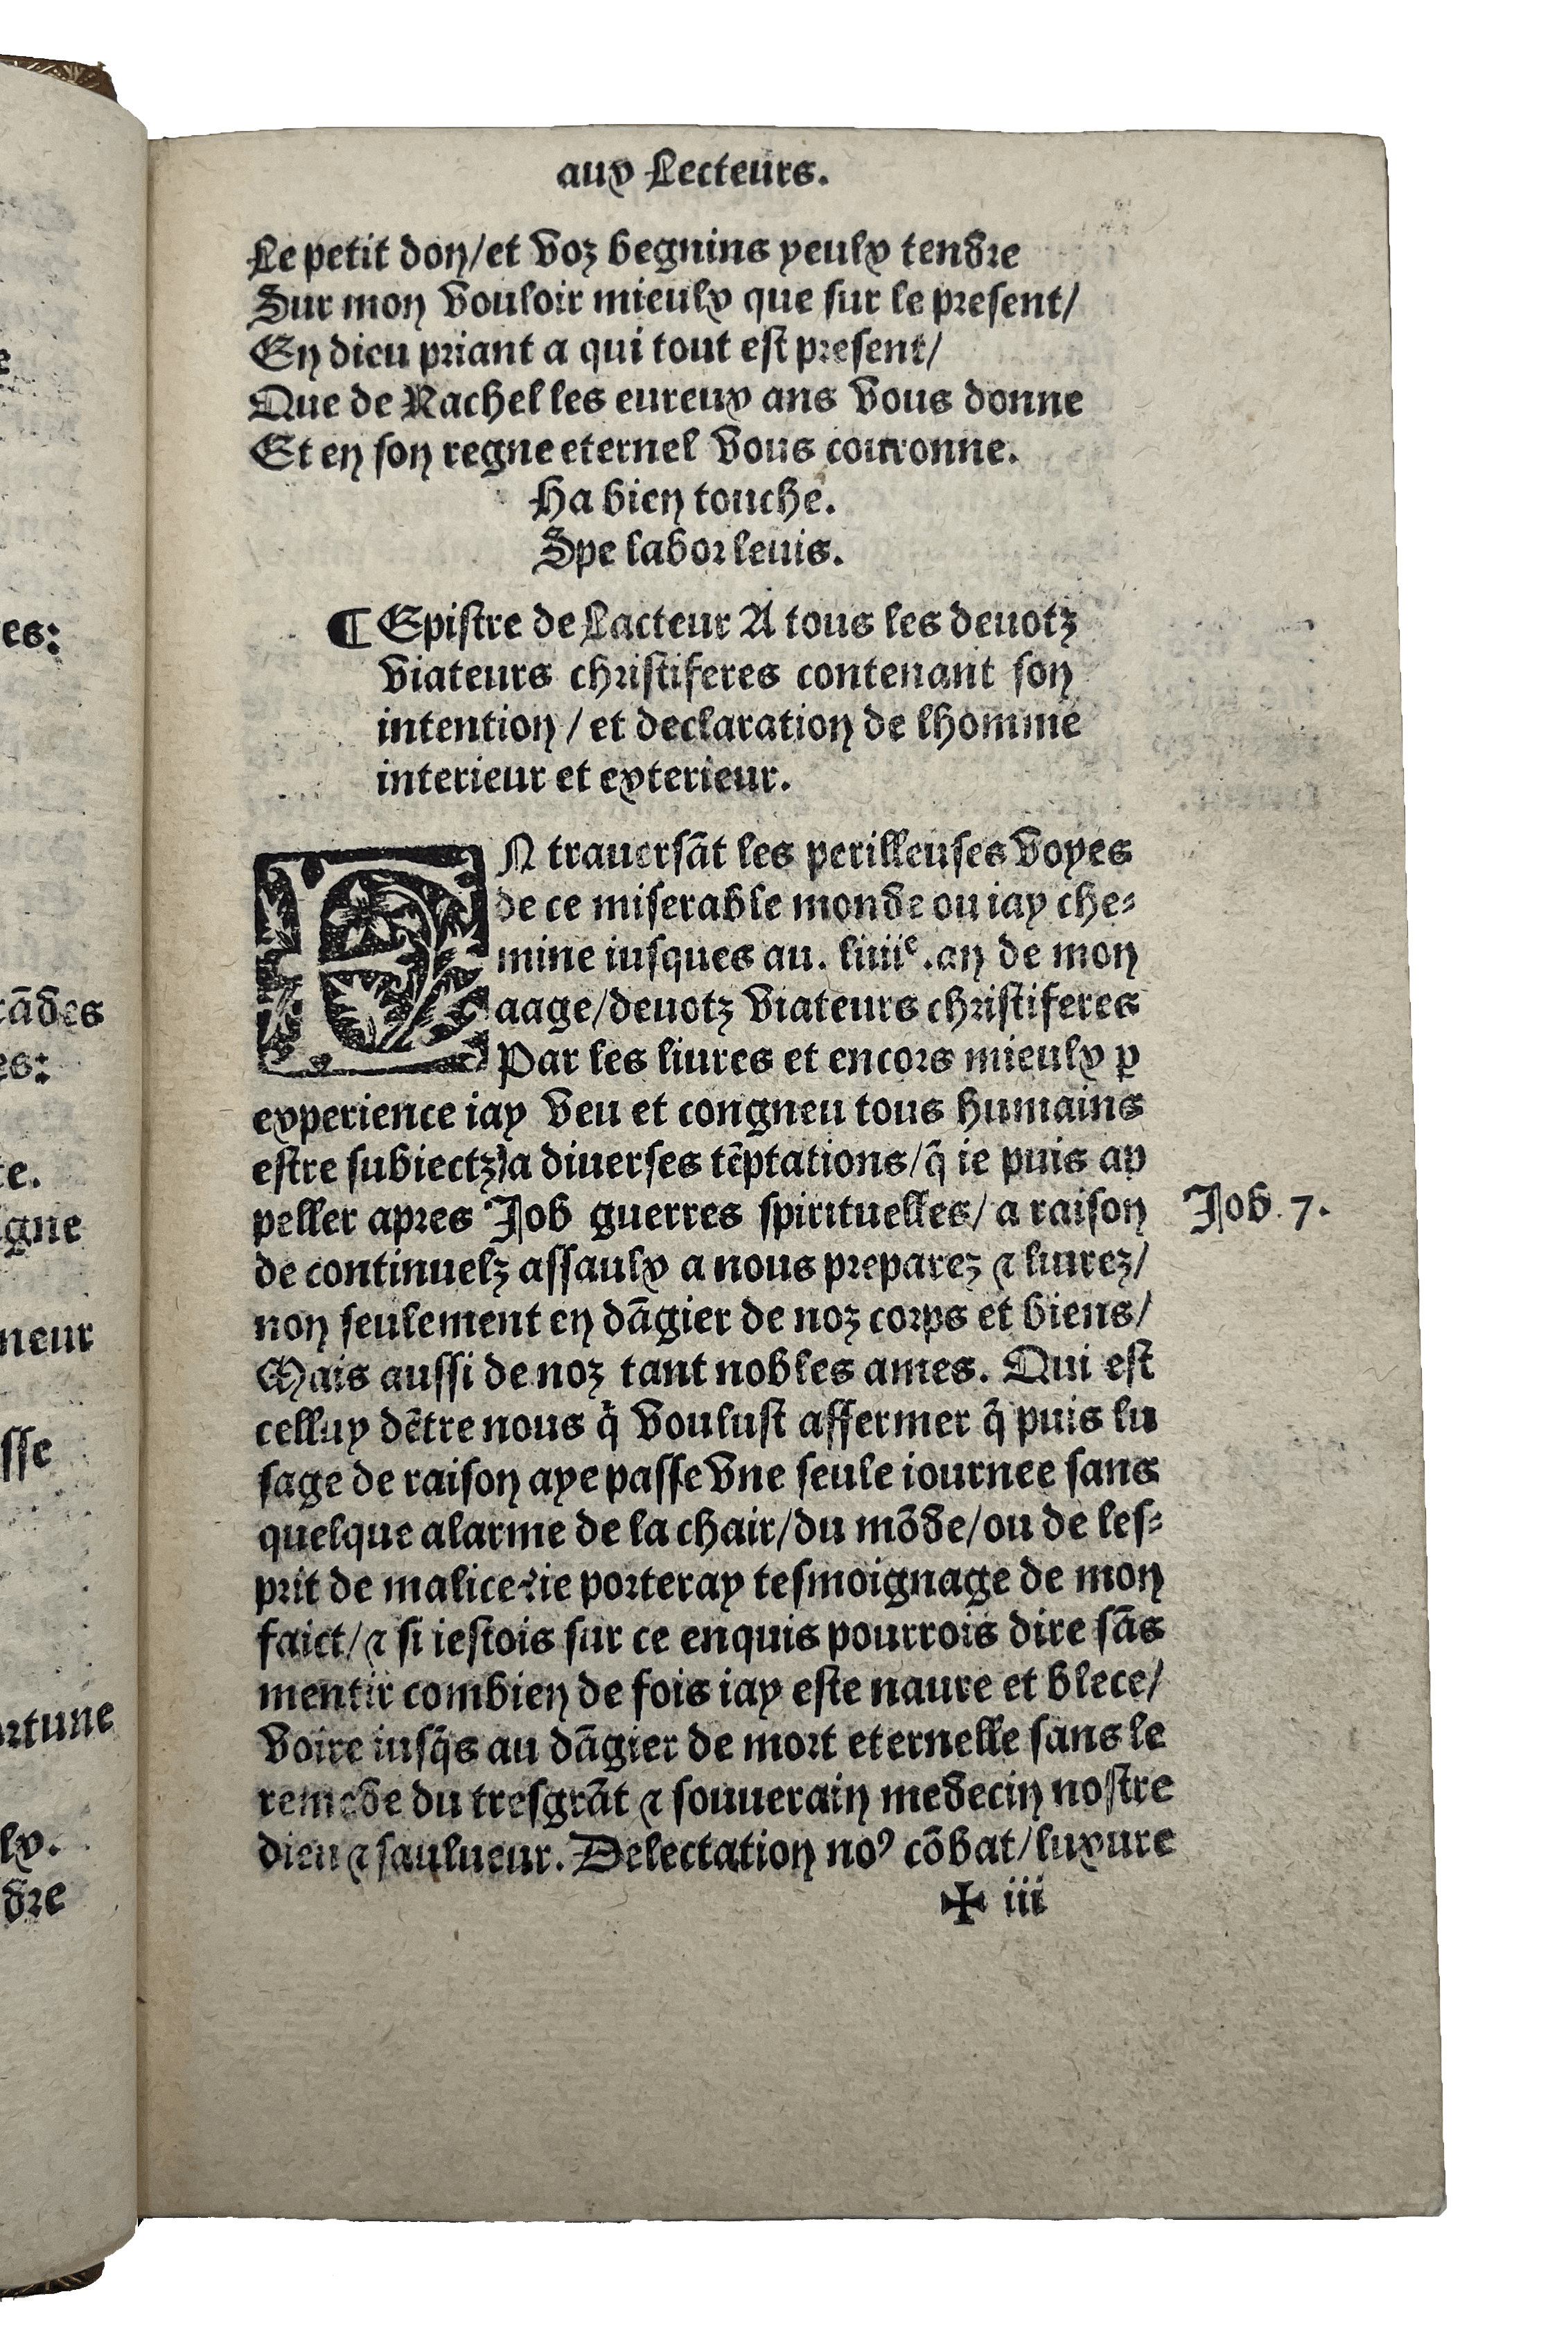 aux Lecteurs.
Le petit don/et voz begnins yeulx tendre
Sur mon vouloir mieulx que sur le present/
En dieu priant a qui tout est present/
Que de Rachel les eureux ans vous donne
Et en son regne eternel vous couronne.
Ha bien touche.
Spe labor leuis.
¶ Epistre de Lacteur A tous les deuotz
viateurs christiferes contenant son
intention / et declaration de lhomme
interieur et exterieur.
EN trauersãt les perilleuses voyes
de ce miserable monde ou iay che⸗
mine iusques au. liiiiᵉ.an de mon
aage/deuotz viateurs christiferes
Par les liures et encors mieulx ꝑ
experience iay veu et congneu tous humains
estre subiectz a diuerses tẽptations/q̃ ie puis ap
peller apres Job guerres spirituelles/ a raison
Job. 7.
de continuelz assaulx a nous preparez ⁊ liurez/
non seulement en dãgier de noz corps et biens/
Mais aussi de noz tant nobles ames. Qui est
celluy dẽtre nous q̃ voulust affermer q̃ puis lu
sage de raison aye passe vne seule iournee sans
quelque alarme de la chair/du mõde/ou de les⸗
prit de malice: ie porteray tesmoignage de mon
faict/⁊ si iestois sur ce enquis pourrois dire sãs
mentir combien de fois iay este naure et blece/
Voire iusq̃s au dãgier de mort eternelle sans le
remede du tresgrãt ⁊ souuerain medecin nostre
dieu ⁊ saulueur. Delectation noꝰ cõbat/luxure
✠ iii
es:
rãdes
es:
te.
igne
neur
sse
ortune
lx.
dre